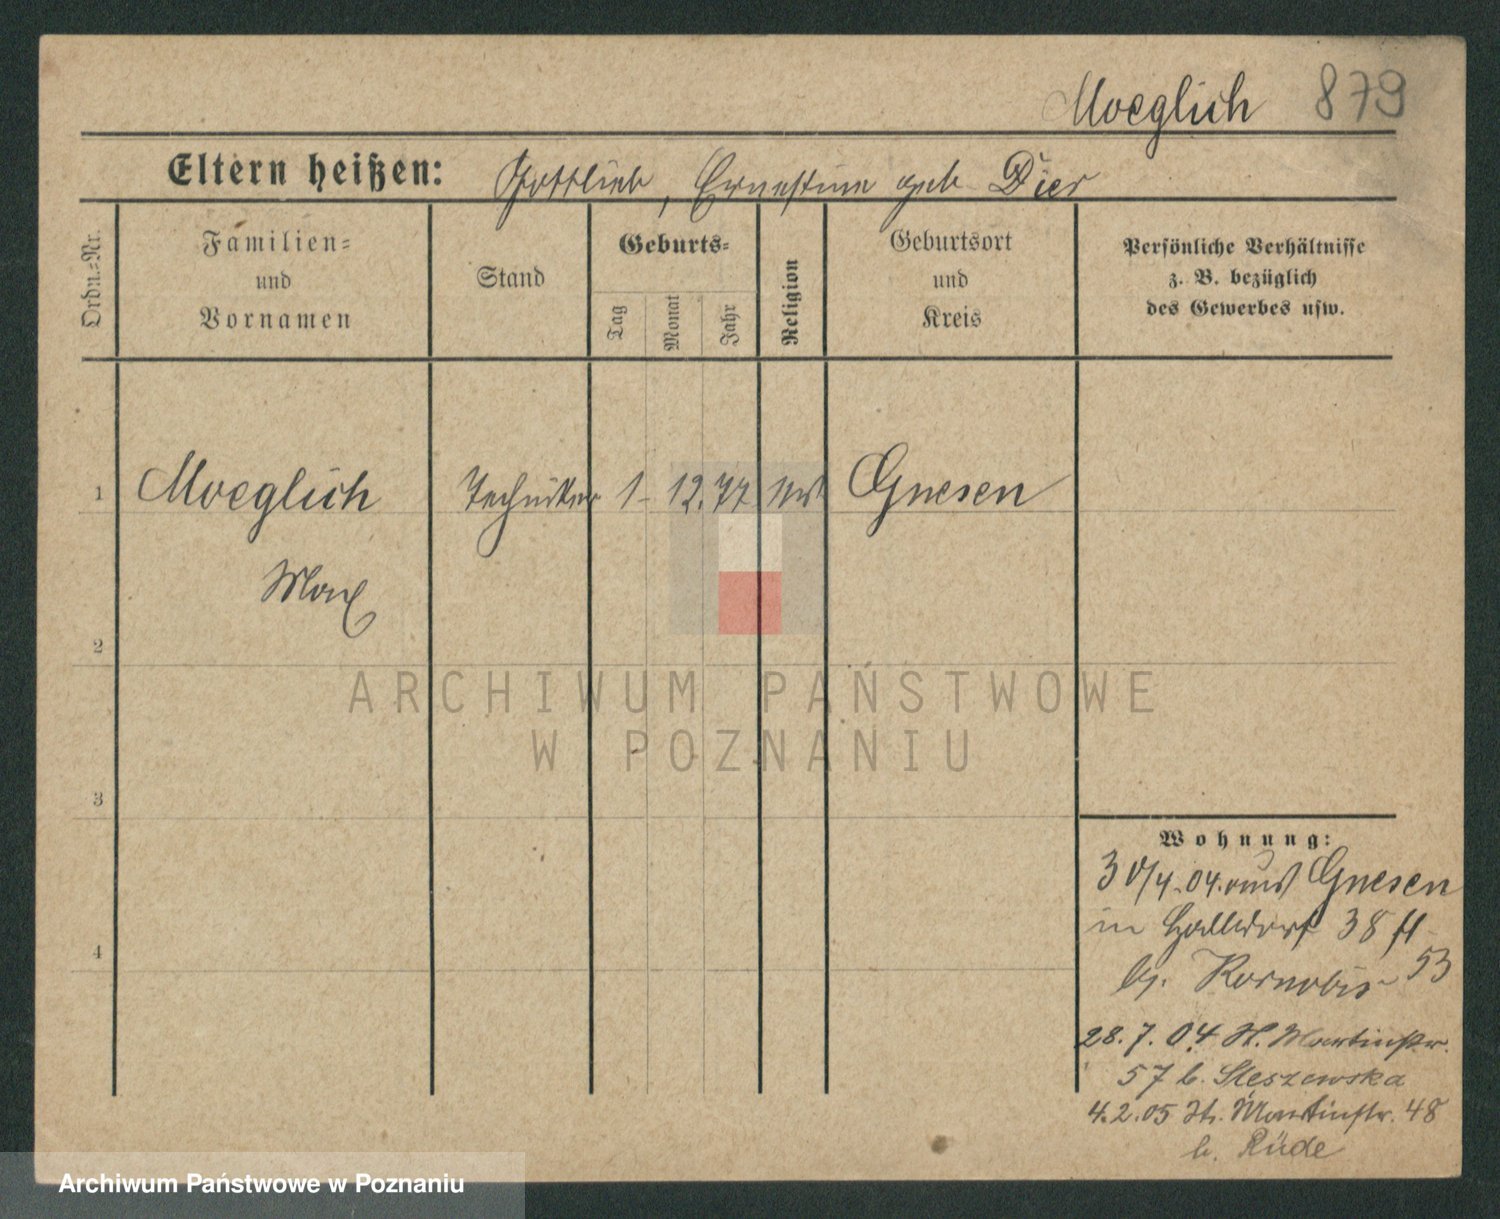 Moeglich 879
Eltern heißen: Gottlieb, Ernestine geb Dier
Ordn.=Nr.
Familien=
und
Vornamen
Stand
Geburts=
Tag
Monat
Jahr
Religion
Geburtsort
und
Kreis
Persönliche Verhältnisse
z. B. bezüglich
des Gewerbes usw.
1 Moeglich Techniker 1. 12. 77 Gnesen
Max
2
3
4
Wohnung:
30/4. 04. aus Gnesen
in Halldorf 38
b. 53
28. 7. 04 St. Martinstr.
57 b. Sleszewska
4. 2. 05 St. Martinstr. 48
b. Rüde
ARCHIWUM PAŃSTWOWE
W POZNANIU
Archiwum Państwowe w Poznaniu